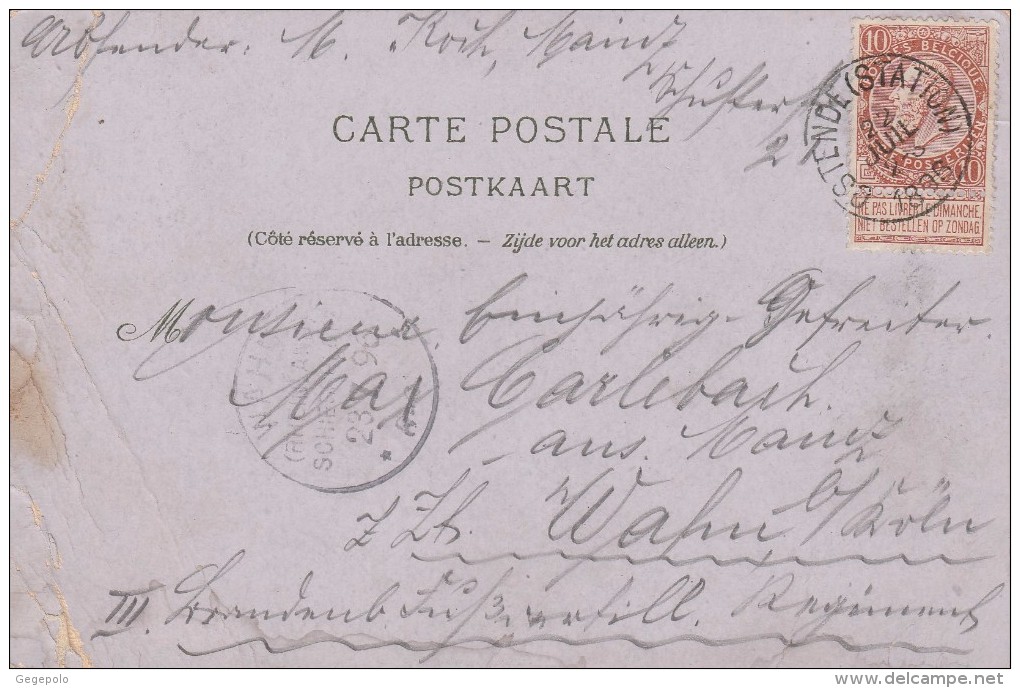 Absender: M. Koch, Mainz
Schusterstr
2
CARTE POSTALE
POSTKAART
(Côté réservé à l'adresse. – Zijde voor het adres alleen.)
10
POSTES BELGIQUE
BELGIE POSTERIJEN
10
NE PAS LIVRER LE DIMANCHE
NIET BESTELLEN OP ZONDAG
OSTENDE (STATION)
JUIL
WAHN
SCHIE
23
Monsieur Einjährig-Gefreiter
Max Carlebach
aus Mainz
z Zt. Wahn b/Köln
III. Brandenb. Fußartill. Regiment
Gegepolo
delcampe.net